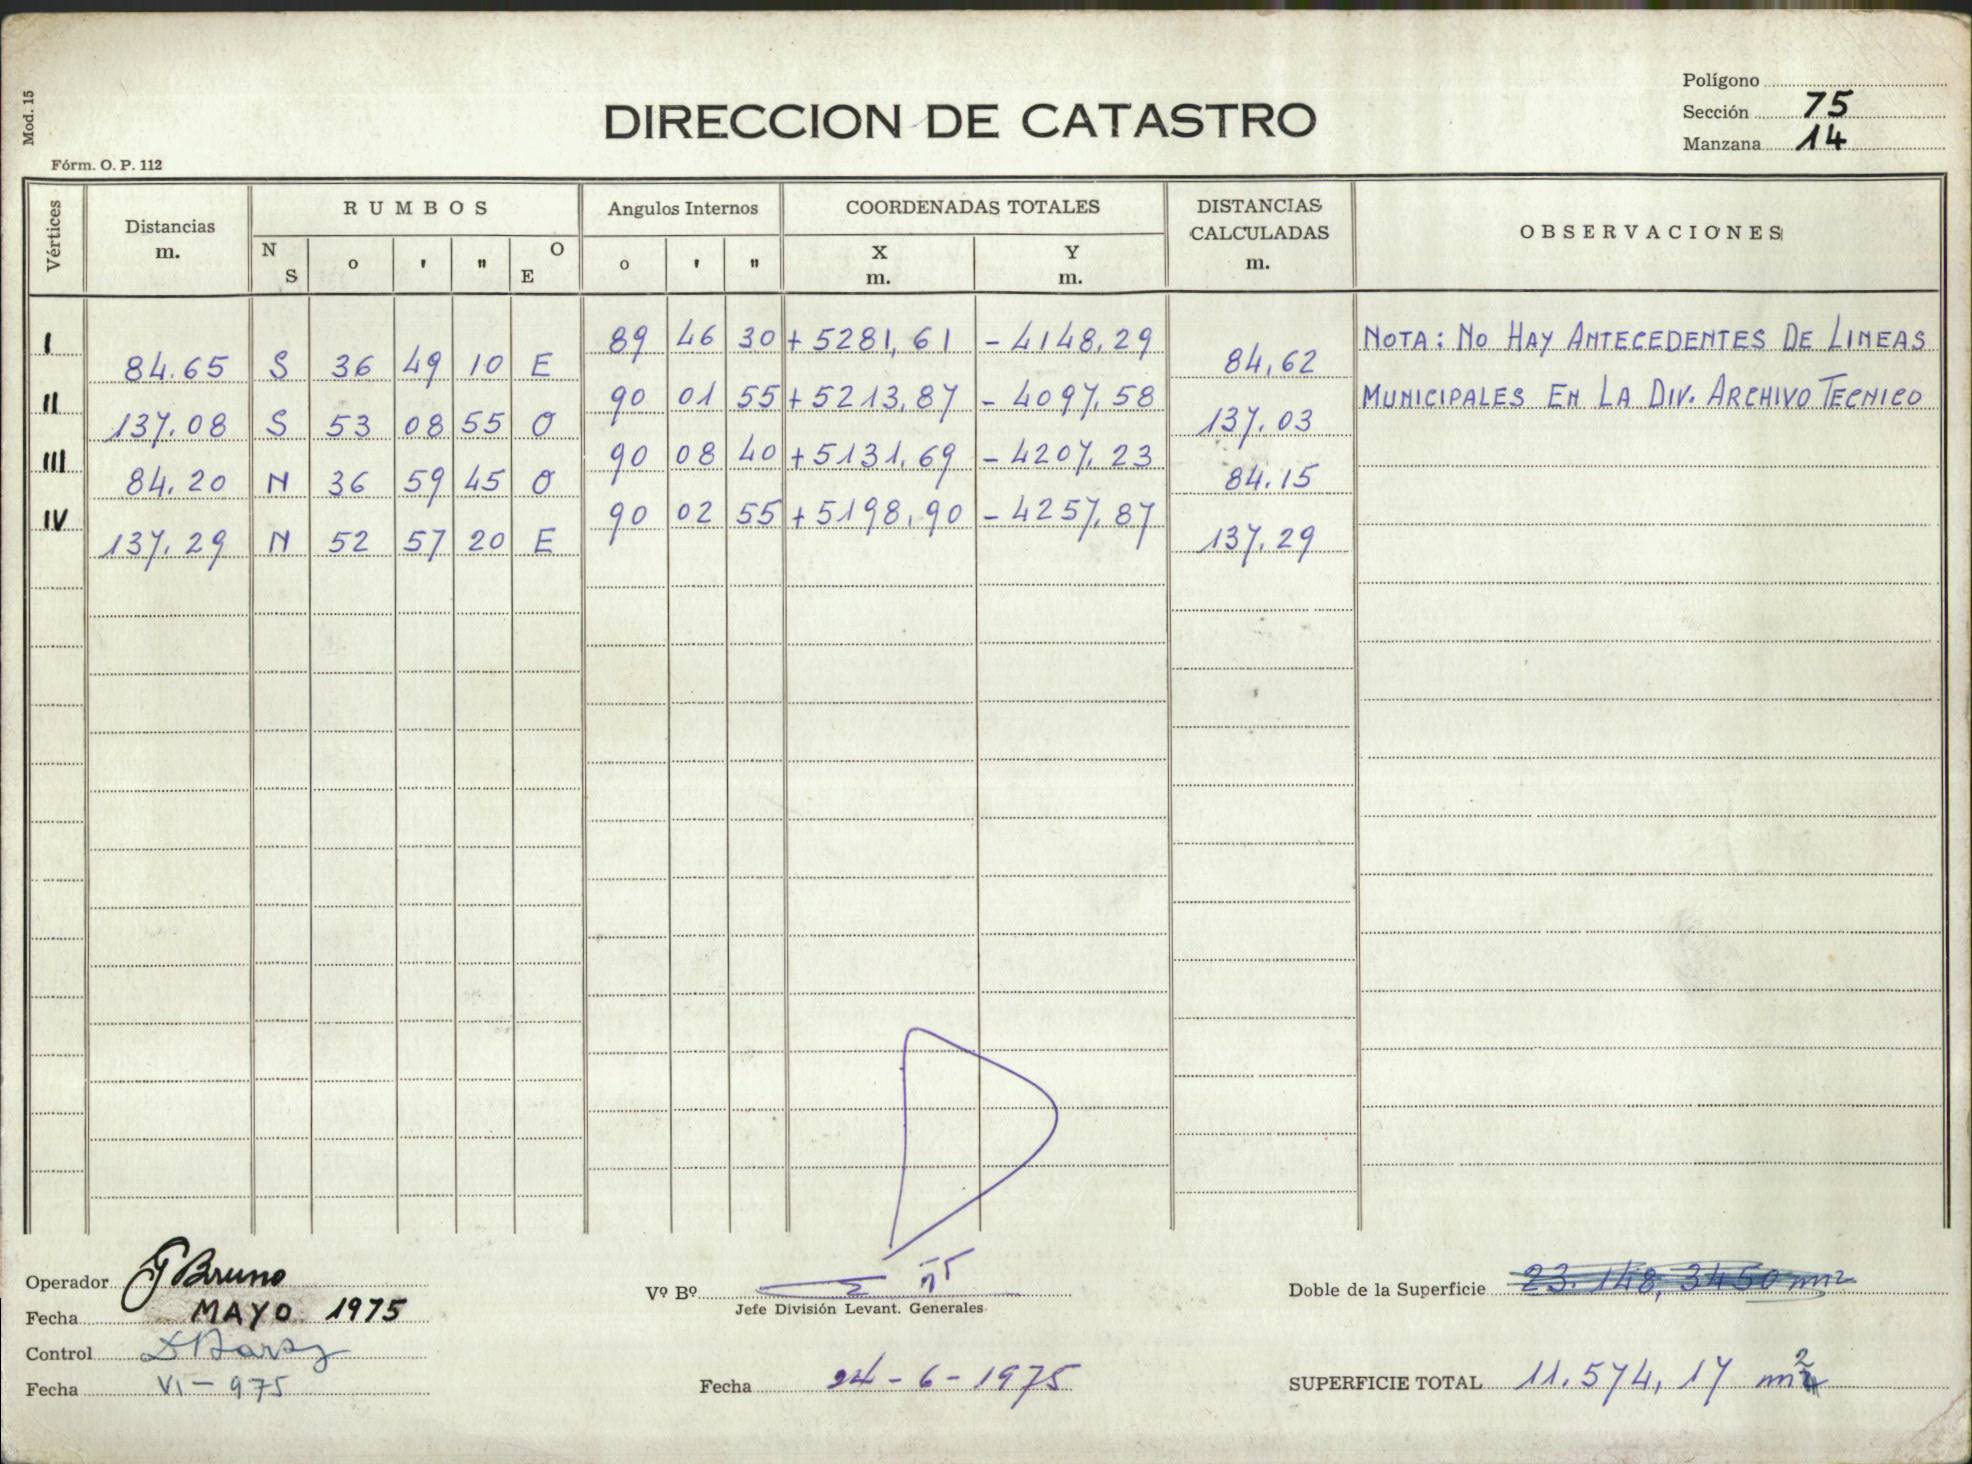 Mod. 15
Fórm. O. P. 112
DIRECCION DE CATASTRO
Polígono
Sección 75
Manzana 14
Vértices
Distancias
m.
RUMBOS
N S ° ' " O E
Angulos Internos
° ' "
COORDENADAS TOTALES
X m. Y m.
DISTANCIAS CALCULADAS
m.
OBSERVACIONES
I 89 46 30 +5281,61 -4148,29 NOTA: NO HAY ANTECEDENTES DE LINEAS
84.65 S 36 49 10 E 84,62
II 90 01 55 +5213,87 -4097,58 MUNICIPALES EN LA DIV. ARCHIVO TECNICO
137.08 S 53 08 55 O 137.03
III 90 08 40 +5131,69 -4207,23
84,20 N 36 59 45 O 84.15
IV 90 02 55 +5198,90 -4257,87
137.29 N 52 57 20 E 137.29
Operador Bruno
Fecha MAYO 1975
Control
Fecha VI-975
Vº Bº
Jefe División Levant. Generales
Fecha 24-6-1975
Doble de la Superficie 23.148,3450 m2
SUPERFICIE TOTAL 11.574,17 m2